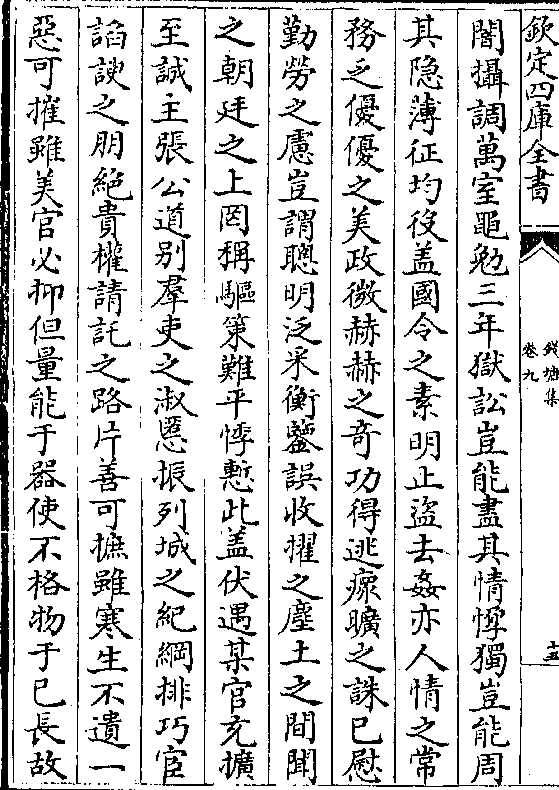 欽定四庫全書
錢塘集
卷九
十五
闇攝調萬室黽勉三年獄訟豈能盡其情惸獨豈能周
其隐薄征均役盖國令之素明止盗去姦亦人情之常
務乏優優之美政微赫赫之奇功得逃瘝曠之誅已慰
勤勞之慮豈謂聰明泛采衡鑒誤收擢之塵土之間聞
之朝廷之上罔稱驅策難平悸慙此盖伏遇某官充擴
至誠主張公道别羣吏之淑慝振列城之紀綱排巧宦
諂諛之朋絶貴權請託之路片善可摭雖寒生不遺一
惡可摧雖美官必抑但量能于器使不格物于已長故